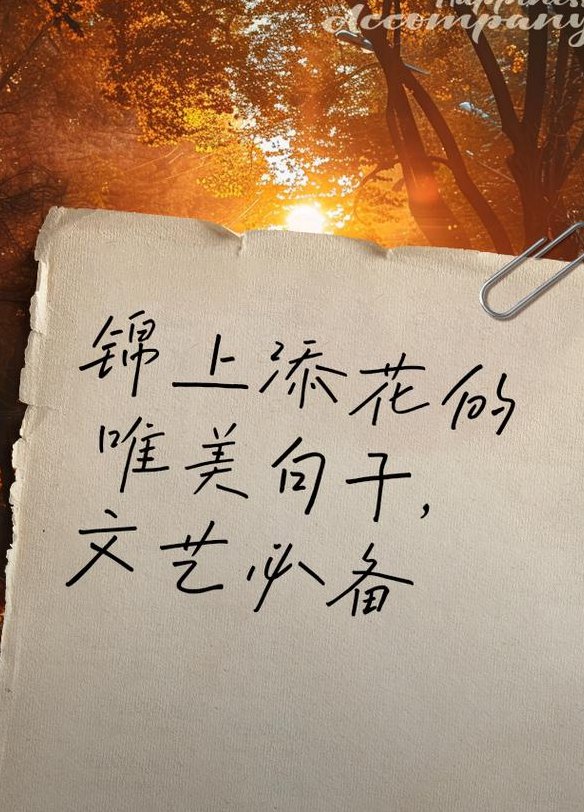 Happiness
Accompany
锦上添花的
唯美句子,
文艺必备